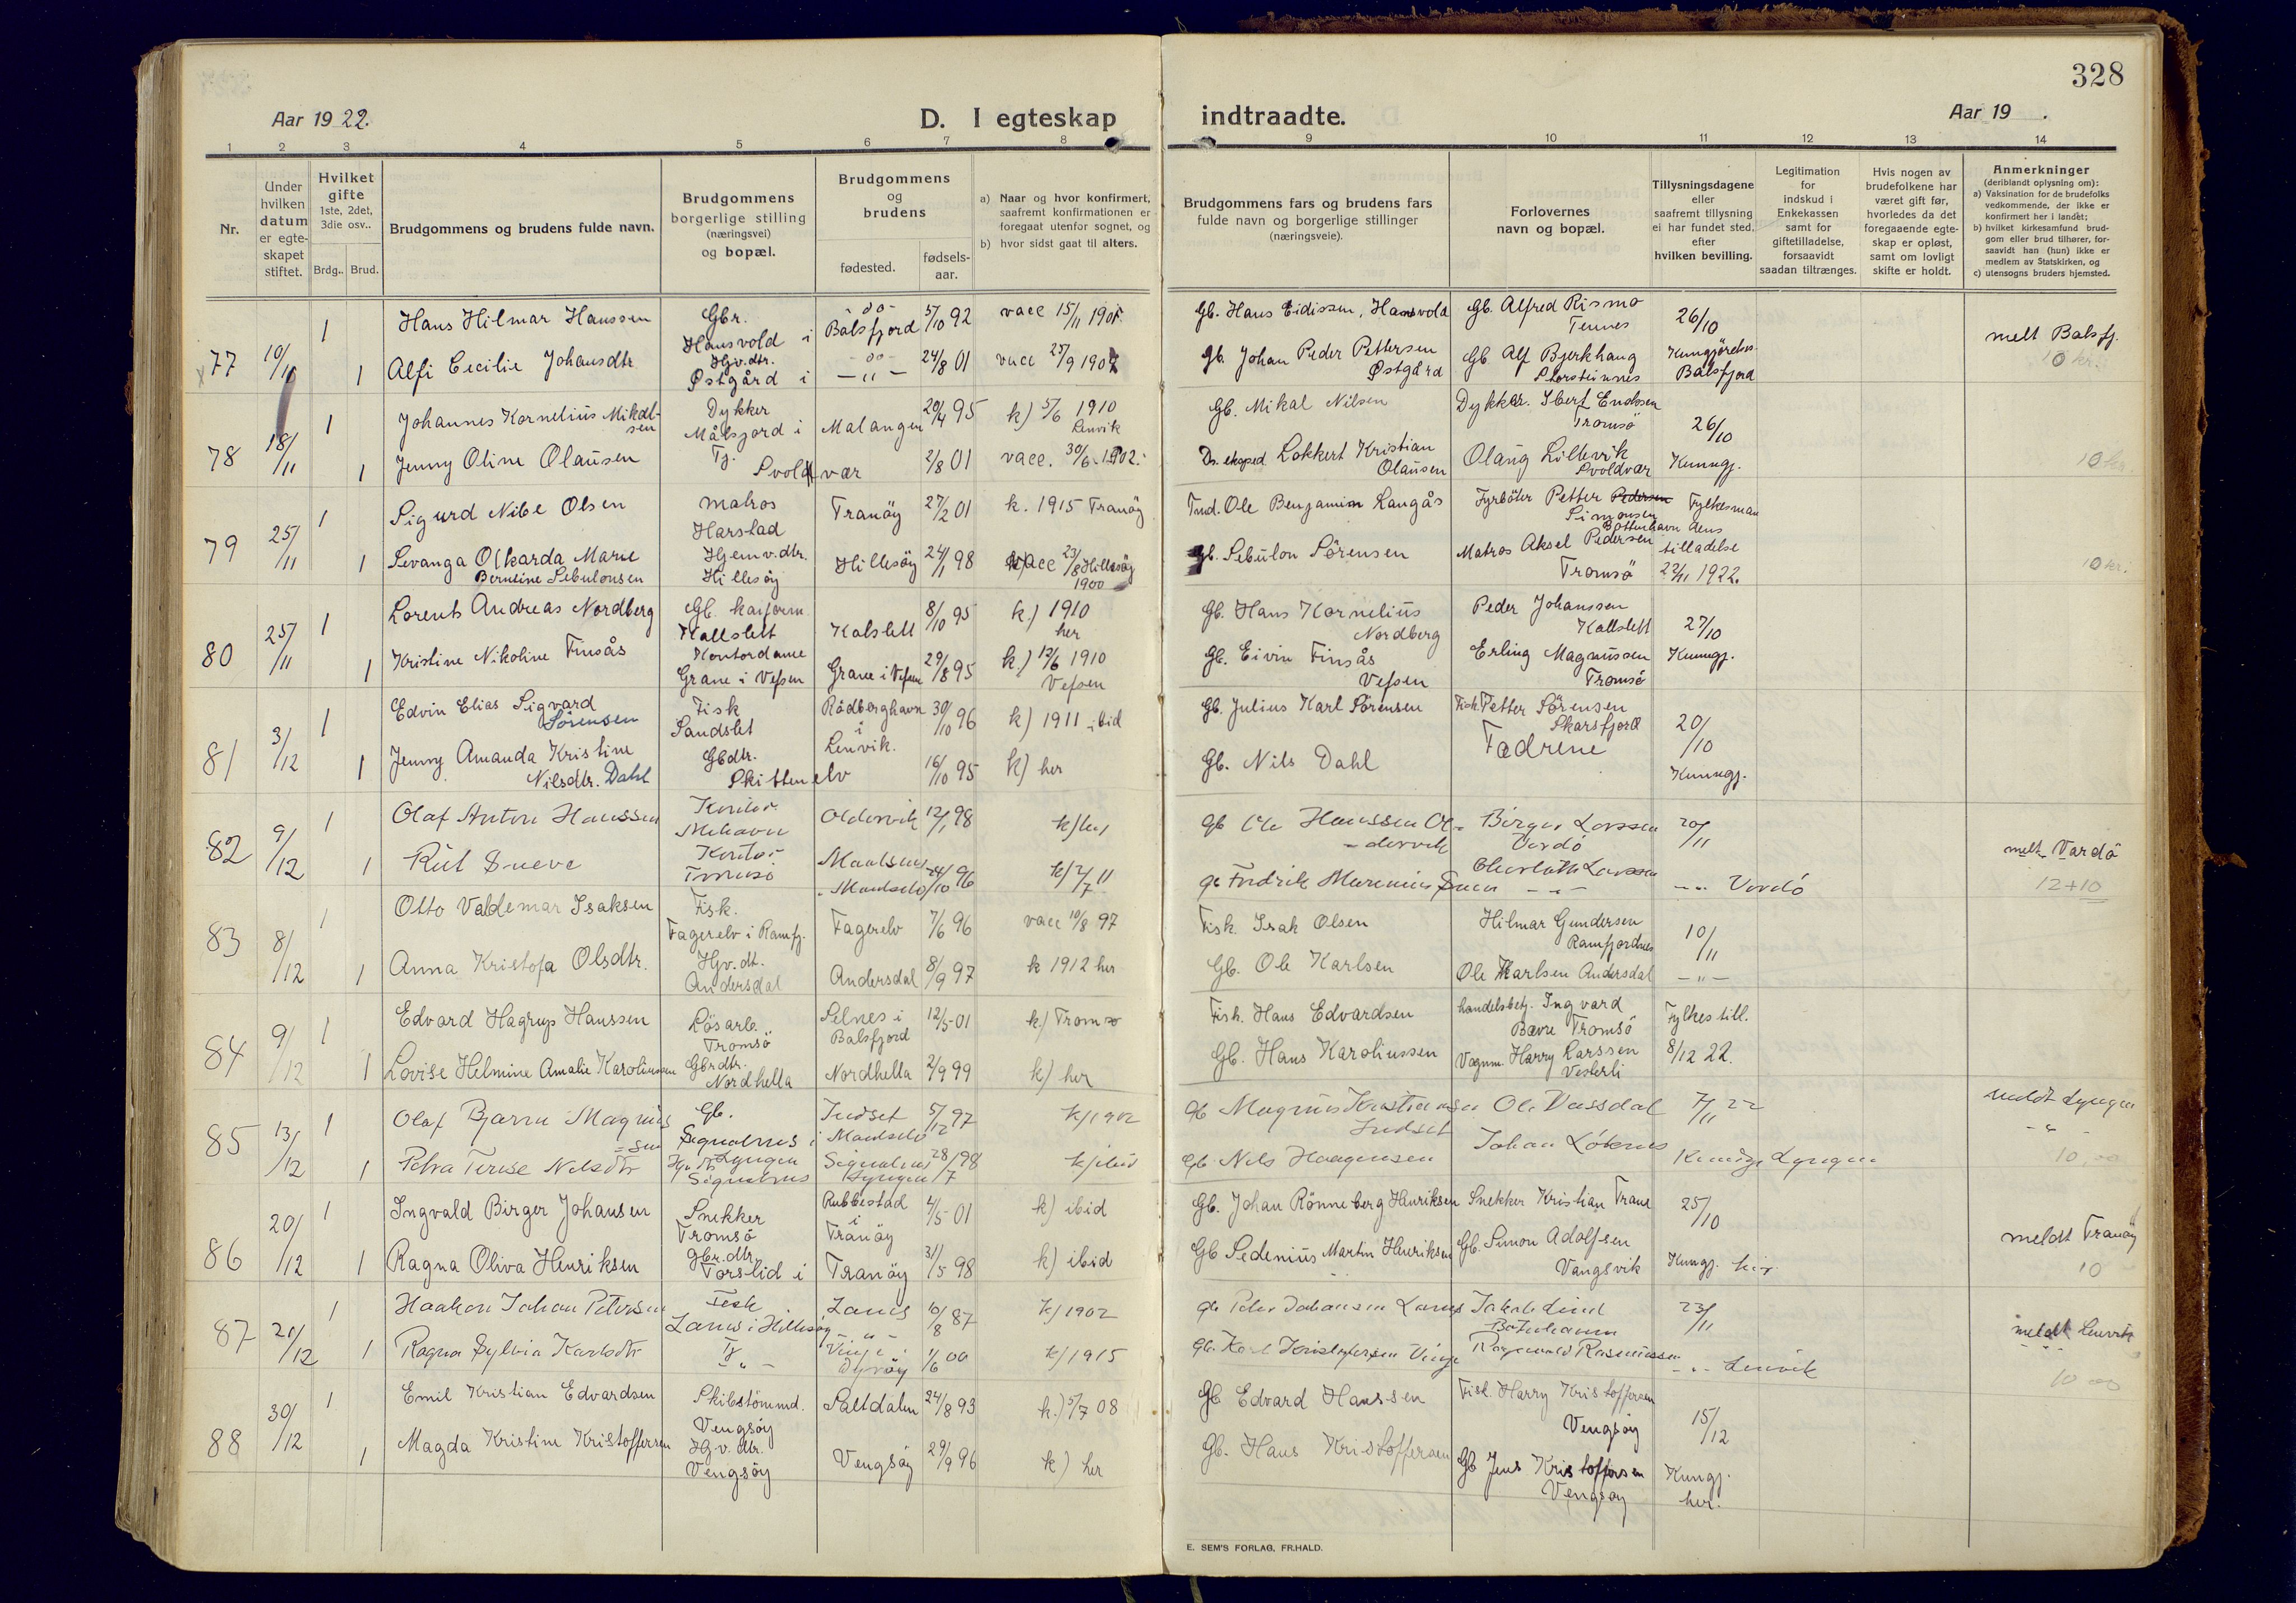 328
Aar 19 22.
D. I egteskap
indtraadte.
Aar 19 .
1 2 3 4 5 6 7 8 9 10 11 12 13 14
Nr.
Under
hvilken
datum
er egte-
skapet
stiftet.
Hvilket
gifte
1ste, 2det,
3die osv..
Brdg..
Brud.
Brudgommens og brudens fulde navn.
Brudgommens
borgerlige stilling
(næringsvei)
og bopæl.
Brudgommens
og
brudens
fødested.
fødsels-
aar.
a) Naar og hvor konfirmert,
saafremt konfirmationen er
foregaat utenfor sognet, og
b) hvor sidst gaat til alters.
Brudgommens fars og brudens fars
fulde navn og borgerlige stillinger
(næringsveie).
Forlovernes
navn og bopæl.
Tillysningsdagene
eller
saafremt tillysning
ei har fundet sted,
efter
hvilken bevilling.
Legitimation
for
indskud i
Enkekassen
samt for
giftetilladelse,
forsaavidt
saadan tiltrænges.
Hvis nogen av
brudefolkene har
været gift før,
hvorledes da det
foregaaende egte-
skap er opløst,
samt om lovligt
skifte er holdt.
Anmerkninger
(deriblandt oplysning om):
a) Vaksination for de brudefolks
vedkommende, der ikke er
konfirmert her i landet;
b) hvilket kirkesamfund brud-
gom eller brud tilhører, for-
saavidt han (hun) ikke er
medlem av Statskirken, og
c) utensogns bruders hjemsted.
77
10/11
1
Hans Hilmar Hanssen
Gbr.
Hansvold i
-oo-
Balsfjord
5/10 92
vacc 15/11 1901.
Gb. Hans Eidissen, Hansvold
Gb. Alfred Rismo
Tennes
26/10
melt Balsfj.
1
Alfi Cecilie Johansdtr
Hjv.dtr.
Østgård i
-oo-
-"-
24/8 01
vacc 25/9 1902
Gb. Johan Peder Pettersen
Østgård
Gb Alf Bjerkhaug
Storsteinnes
Kungjørelse
Balsfjord
10 kr.
78
18/11
1
Johannes Kornelius Mikal-
sen
Dykker
Målsjord i
Malangen
20/4 95
k) 5/6 1910
Lenvik
Gb. Mikal Nilsen
Dykker. Sbert Enoksen
Tromsö
26/10
1
Jenny Oline Olaüsen
Tj.
Svoldvær
2/8 01
vacc. 30/6 1902.
Ds. eksped. Lokkert Kristian
Olaüsen
Olaüg Lillevik
Svoldvær
Kunngj.
10 kr.
79
25/11
1
Sigurd Nibe Olsen
matros
Harstad
Tranöy
27/2 01
k. 1915 Tranöy
Tmd. Ole Benjamin Langås
Fyrböter Petter Pedersen
Simonsen
Bottenhavn
Fylkesman
dens
1
Sevanga Olkarda Marie
Berntine Sebulonsen
Hjemv.dtr.
Hillesöy
Hillesöy
24/1 98
vacc 23/8 Hillesöy
1900
Gb. Sebulon Sörensen
Matros Aksel Pedersen
Tromsö
tilladelse
22/11 1922.
10 kr.
80
25/11
1
Lorents Andreas Nordberg
Gb.
Kallslett
Kalslett
8/10 95
k.) 1910
her
Gb. Hans Kornelius
Nordberg
Peder Johanssen
Kallslett
27/10
1
Kristine Nikoline Finsås
Kontordame
Grane i Vefsen
Grane i Vefsen
29/8 95
k.) 12/6 1910
Vefsen
Gb. Eivin Finsås
Vefsen
Erling Magnüssen
Tromsö
Kunngj.
81
3/12
1
Edvin Elias Sigvard
Sörensen
Fisk
Sandslet
Rödberghavn
i
Lenvik.
30/10 96
k) 1911 ibid
Gb. Julius Karl Sörensen
Fisk. Petter Sörensen
Skarsfjord
20/10
1
Jenny Amanda Kristine
Nilsdtr. Dahl
Gbdtr.
Skittenelv
16/10 95
k) her
Gb. Nils Dahl
Fædrene
Kunngj.
82
9/12
1
Olaf Anton Hanssen
Kontor.
Mehavn
Oldervik
12/1 98
k) her
Gb Ole Hanssen Ol-
dervik
Birger Larssen
Vardö
20/11
melt Vardö
1
Rüt Sneve
Kontor
Tromsö
Maalsnes
Maalselv
24/10 96
k) 2/7 11
Gb Fredrik Marenius Sneve
Charlotte Larssen
-"-
-"- Vardö
12+10
83
8/12
1
Otto Valdemar Isaksen
Fisk.
Fagerelv i Ramfj.
Fagerelv
7/6 96
vacc 10/8 97
Fisk. Isak Olsen
Hilmar Gundersen
Ramfjordnes
10/11
1
Anna Kristofa Olsdtr.
Hjv.dt.
Andersdal
Andersdal
8/9 97
k 1912 her
Gb. Ole Karlsen
Ole Karlsen Andersdal
-"-
84
9/12
1
Edvard Hagrup Hanssen
Lösarb.
Tromsö
Selnes i
Balsfjord
12/5 01
k.) Tromsø
Fisk. Hans Edvardsen
handelsbetj. Ingvard
Bævre Tromsö
Fylkestill.
1
Lovise Helmine Amalie Karoliussen
Gbrdtr.
Nordhella
Nordhella
2/9 99
k) her
Gb. Hans Karoliussen
Vognm. Harry Larssen
Vesterli
8/12 22.
85
13/12
1
Olaf Bjarne Magnüs
=sen
Gb.
Signalnes i
Lyngen
Indset
Maalselv
5/12 97
k) 1902
Gb Magnüs Kristiansen
Indset
Ole Dassdal
7/11 22
meldt Lyngen
-"-
1
Petra Terese Nilsdtr
Hjv dt
Signalnes
Signalnes
Lyngen
28/7 98
k) ibid
Gb. Nils Haagensen
Johan Löknes
Kundgj Lyngen
10,00
86
20/12
1
Ingvald Birger Johansen
Snekker
Tromsö
Rubbestad
i
Tranöy
4/5 01
k) ibid
Gb. Johan Rönneberg Henriksen
Snekker Kristian Trane
25/10
meldt Tranöy
1
Ragna Oliva Henriksen
Gbr.dtr.
Torslid i
Tranöy
31/5 98
k) ibid
Gb Sedeniüs Martin Henriksen
Gb. Simon Adolfsen
Vangsvik
Kungj. her
10
87
20/12
1
Haakon Johan Petersen
Fisk
Lanes i Hillesøy
Lanes
-"-
10/8 87
k) 1902
Gb Peter Johansen Lanes
Jakob Lind
Botnhavn
23/11
meldt Lenvik
1
Ragna Sylvia Karlsdtr
Tj
-"-
Vinje i
Dyröy
1/6 00
k) 1915
Gb. Karl Kristofersen Vinje
Ragnvald Rasmussen
-"- Lenvik
10 00
88
30/12
1
Emil Kristian Edvardsen
Skibstömmd.
Vengsöy
Saltdalen
24/8 93
k.) 5/7 08
Gb Edvard Hanssen
Fisk. Harry Kristoffersen
Vengsöy
15/12
1
Magda Kristine Kristoffersen
Hjv. dtr.
Vengsöy
Vengsöy
29/9 96
k) her
Gb. Hans Kristoffersen
Gb Jens Kristoffersen
Vengsöy
Kungj.
her.
E. SEM'S FORLAG, FR.HALD.